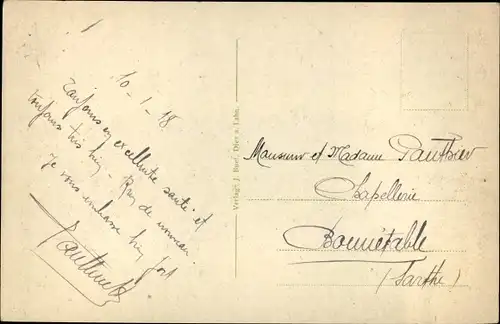 10-1-18
Toujours en excellente santé et
toujours très bien - Rien de nouveau.
Je vous embrasse bien fort
Verlag: J. Diez a. Lahn.
Monsieur et Madame Pauthier
Chapellerie
Bonnétable
(Sarthe)